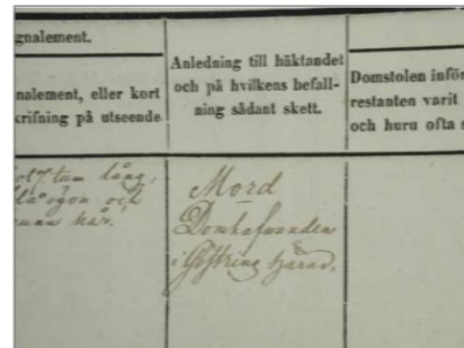 gnalement.
nalement, eller kort
krifning på utseende.
Anledning till häktandet
och på hvilkens befall-
ning sådant skett.
Domstolen inför
restanten varit
och huru ofta s
tum lång,
blå ögon och
hår.
Mord
Domhafvanden
i Gestrins härad.